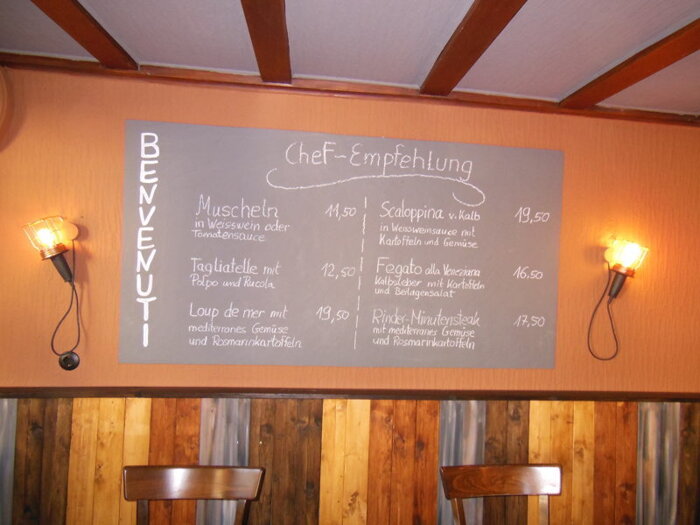 BENVENUTI
Chef-Empfehlung
Muscheln 11,50
in Weisswein oder
Tomatensauce
Tagliatelle mit 12,50
Polpo und Rucola
Loup de mer mit 19,50
mediterranes Gemüse
und Rosmarinkartoffeln
Scaloppina v. Kalb 19,50
in Weissweinsauce mit
Kartoffeln und Gemüse
Fegato alla Veneziana 16,50
Kalbsleber mit Kartoffeln
und Beilagensalat
Rinder-Minutensteak 17,50
mit mediterranes Gemüse
und Rosmarinkartoffeln